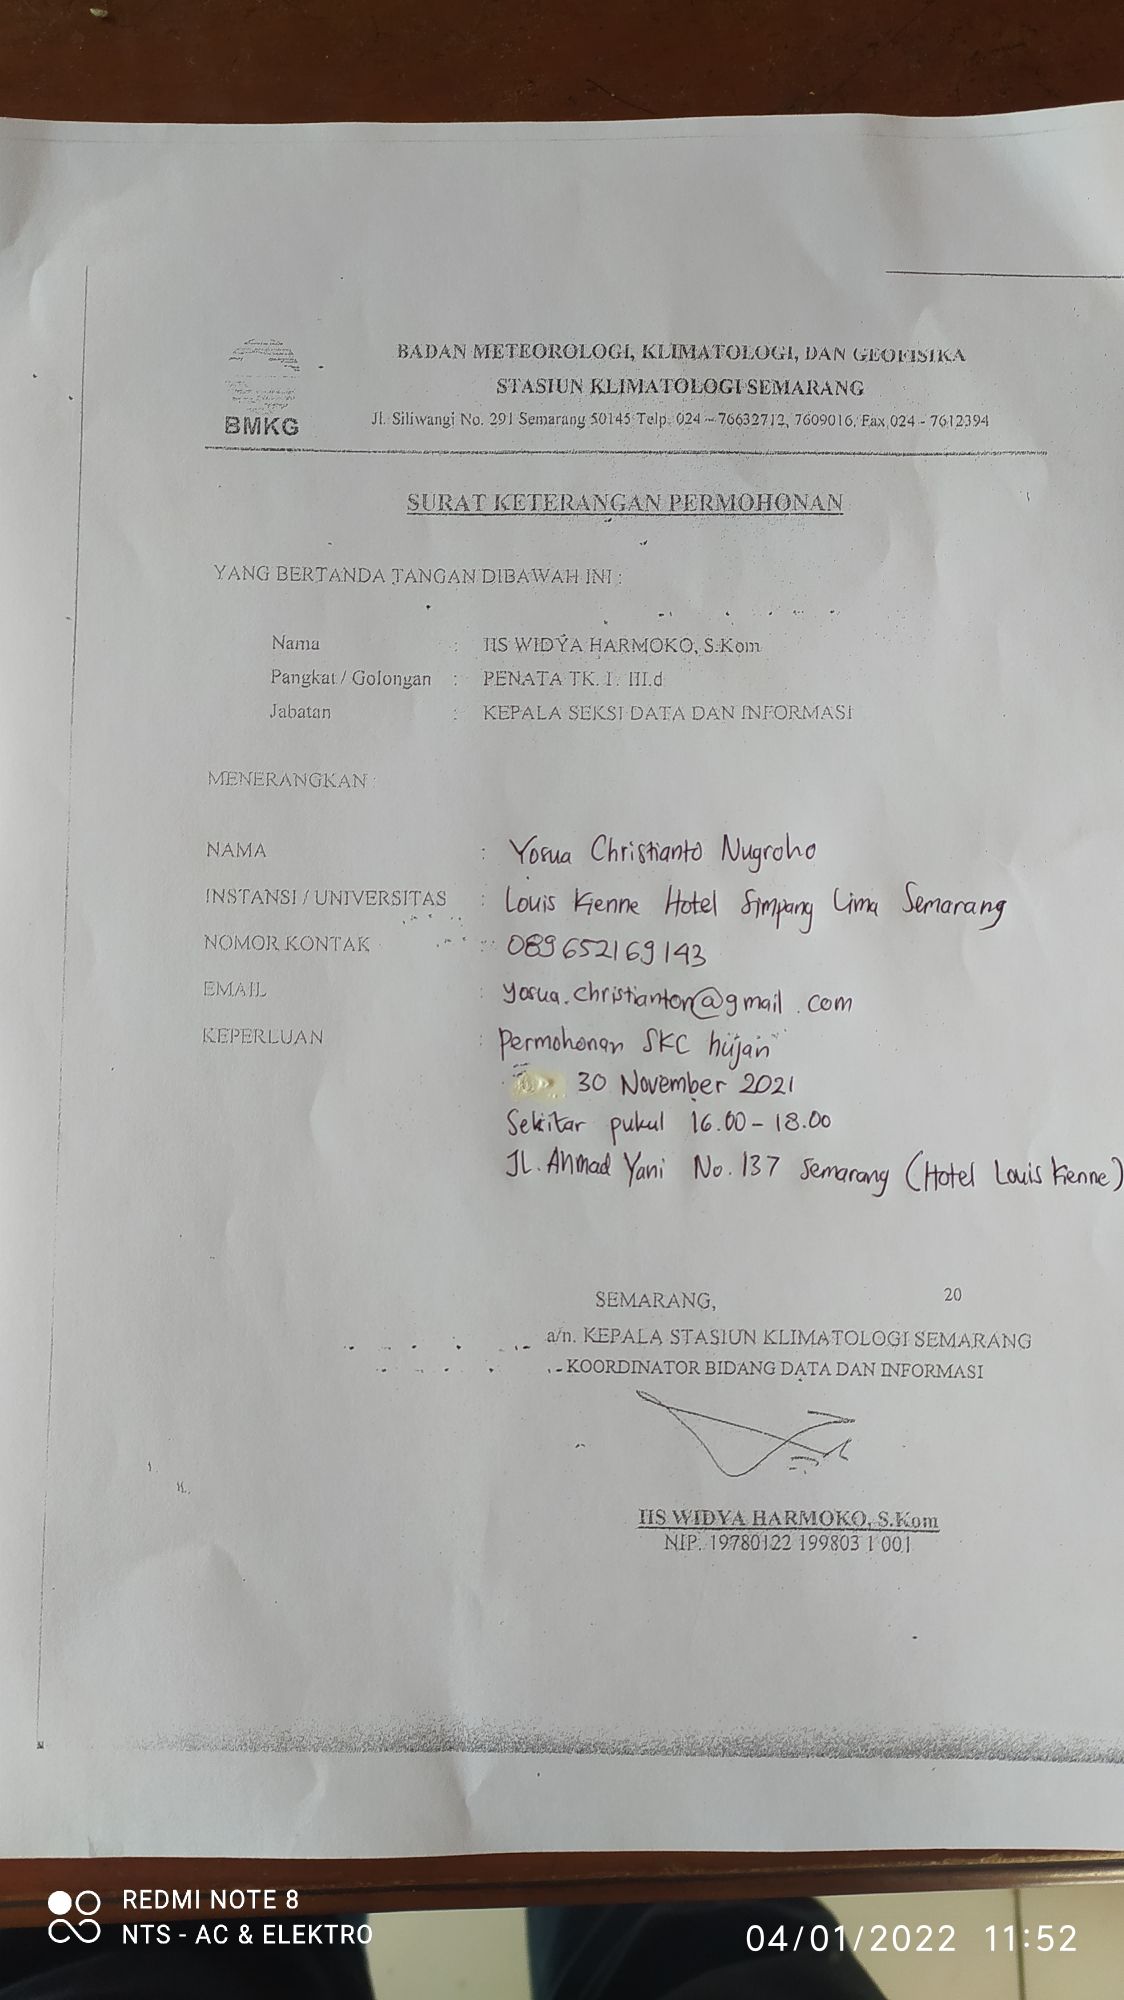 BADAN METEOROLOGI, KLIMATOLOGI, DAN GEOFISIKA
STASIUN KLIMATOLOGI SEMARANG
BMKG
Jl. Siliwangi No. 291 Semarang 50145 Telp. 024 – 76632712, 7609016, Fax 024 - 7612394
SURAT KETERANGAN PERMOHONAN
YANG BERTANDA TANGAN DIBAWAH INI :
Nama : IIS WIDYA HARMOKO, S.Kom
Pangkat / Golongan : PENATA TK. I. III.d
Jabatan : KEPALA SEKSI DATA DAN INFORMASI
MENERANGKAN :
NAMA : Yosua Christianto Nugroho
INSTANSI / UNIVERSITAS : Louis Kienne Hotel Simpang Lima Semarang
NOMOR KONTAK : 089652169143
EMAIL : yosua.christianton@gmail.com
KEPERLUAN : Permohonan SKC hujan
30 November 2021
Sekitar pukul 16.00 – 18.00
JL. Ahmad Yani No. 137 Semarang (Hotel Louis Kienne)
SEMARANG, 20
a/n. KEPALA STASIUN KLIMATOLOGI SEMARANG
KOORDINATOR BIDANG DATA DAN INFORMASI
IIS WIDYA HARMOKO, S.Kom
NIP. 19780122 199803 1 001
REDMI NOTE 8
NTS - AC & ELEKTRO
04/01/2022 11:52